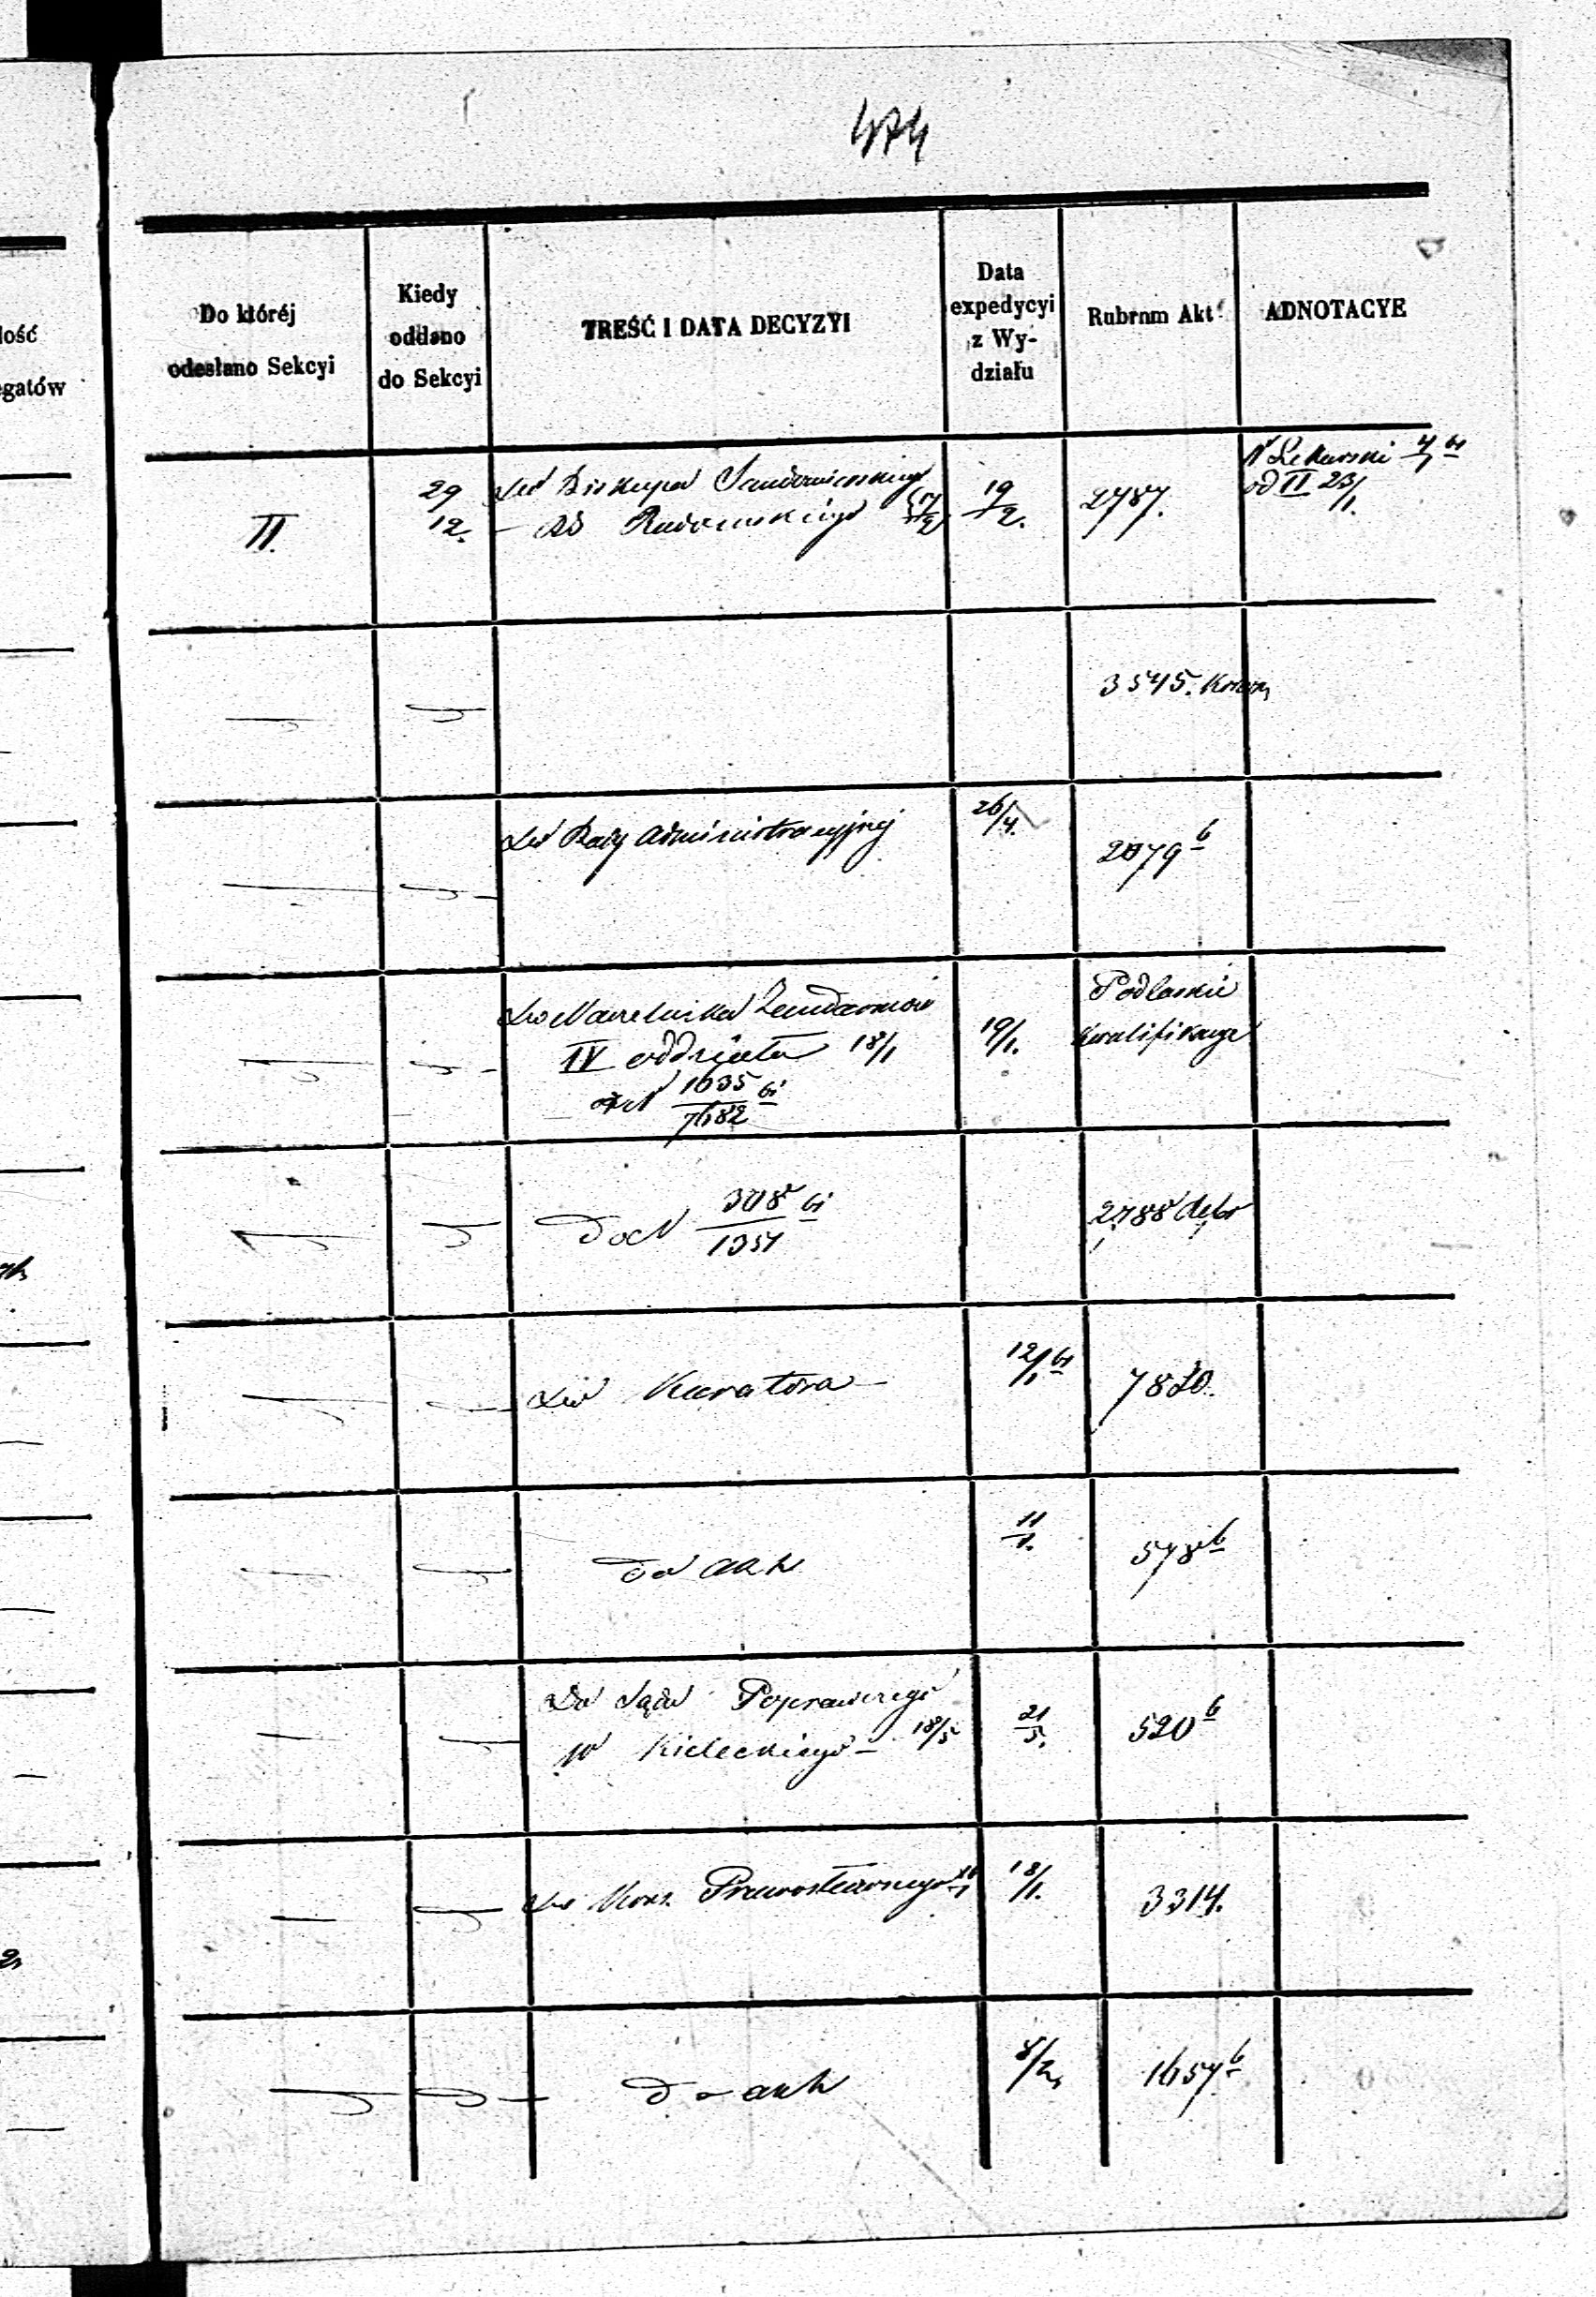 474
Do któréj
odesłano Sekcyi
Kiedy
oddano
do Sekcyi
TREŚĆ I DATA DECYZYI
Data
expedycyi
z Wy-
działu
Rubrum Akt
ADNOTACYE
lość
egatów
II.
29
12.
Do Biskupa Sandomierskiego
— RG Radomskiego 17/2
19/2.
2787.
N Lekarski
od II 23/1.
3545.
Do Rady Administracyjnej
26/4.
2079 b
Do Naczelnika Żandarmów
IV oddziału 18/1
1635
7682
19/1.
Podlaskie
kwalifikacye
do N 308 61
1351
2788
Do Kuratora —
12/1 61
7820.
do akt
11/1.
578 b
Do Sądu Poprawczego
W Kieleckiego — 18/5
21/5.
520 b
Do Kons. Prawosławnego
18/1.
3314.
do akt
8/2
1657 b